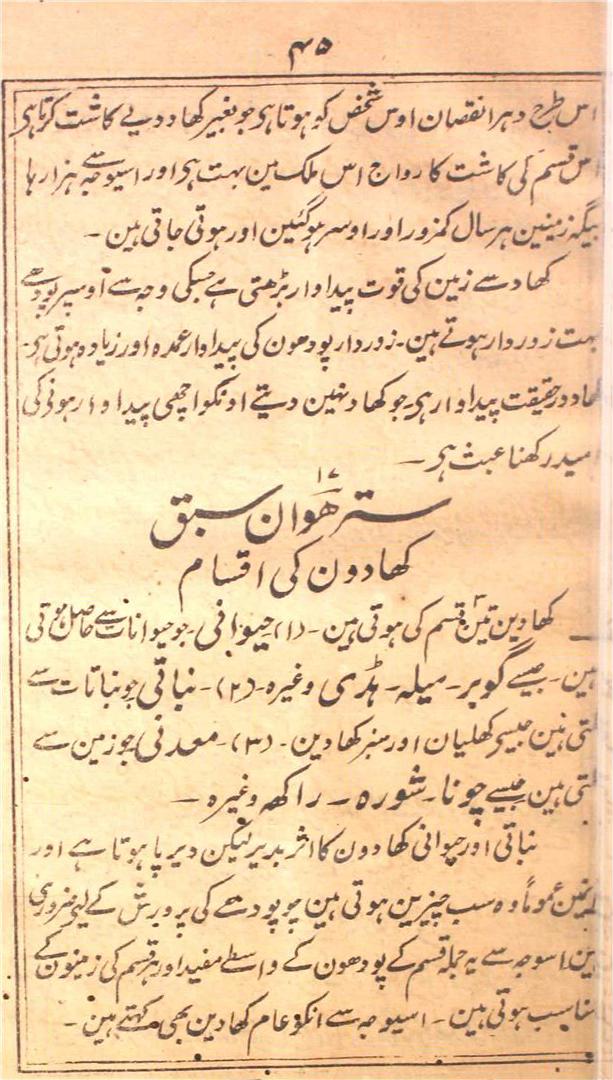 ۴۵
اس طرح دہرا نقصان اوس شخص کو ہوتا ہی جو بغیر کھاد دیے کاشت کرتا ہی
اس قسم کی کاشت کا رواج اس ملک مین بہت ہی اور اسیوجہ سے ہزارہا
بیگہ زمینین ہر سال کمزور اور اوسر ہوگئین اور ہوتی جاتی ہین ۔
کھاد سے زمین کی قوت پیداوار بڑھتی ہے جسکی وجہ سے اوسپر پودھے
بہت زوردار ہوتے ہین ۔ زوردار پودھون کی پیداوار عمدہ اور زیادہ ہوتی ہی ۔
کھاد درحقیقت پیداوار ہی ۔ جو کھاد نہین دیتے اونکو اچھی پیداوار ہونی کی
امید رکھنا عبث ہی ۔
۱۷
سترھوان سبق
کھادون کی اقسام
کھادین تین ۳ قسم کی ہوتی ہین ۔ (۱) حیوانی ۔ جو حیوانات سے حاصل ہوتی
ہین ۔ جیسے گوبر ۔ میلہ ۔ ہڈی وغیرہ ۔ (۲) ۔ نباتی جو نباتات سے
ملتی ہین جیسی کھلیان اور سبز کھادین ۔ (۳) ۔ معدنی جو زمین سے
ملتی ہین جیسے چونا ۔ شورہ ۔ راکھ وغیرہ ۔
نباتی اور حیوانی کھادون کا اثر بدیر لیکن دیرپا ہوتا ہے اور
عموماً وہ سب چیزین ہوتی ہین جو پودھے کی پرورش کے لیے ضروری
ہین اسوجہ سے یہ جملہ قسم کے پودھون کے واسطے مفید اور ہر قسم کی زمینون کے
مناسب ہوتی ہین ۔ اسیوجہ سے انکو عام کھادین بھی کہتے ہین ۔